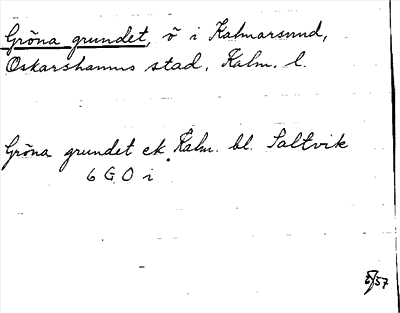 Gröna grundet, ö i Kalmarsund,
Oskarshamns stad, Kalm. l.
Gröna grundet ek. Kalm. bl. Saltvik
6 G O i
6/57